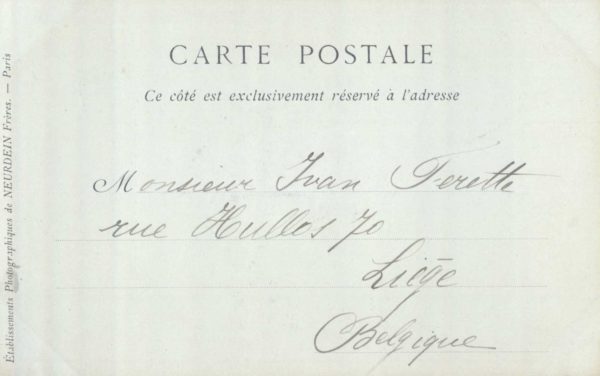 CARTE POSTALE
Ce côté est exclusivement réservé à l'adresse
Monsieur Ivan Terette
rue Hullos 70
Liège
Belgique
Établissements Photographiques de NEURDEIN Frères. — Paris